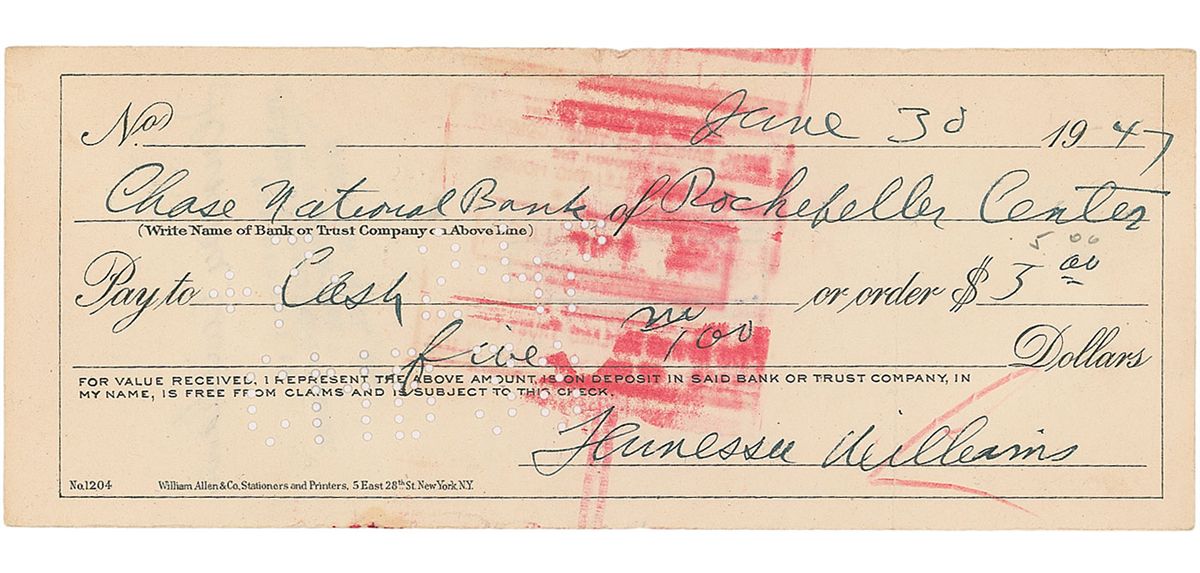 No. June 30 1947
Chase National Bank of Rockefeller Center
(Write Name of Bank or Trust Company on Above Line)
5 00
Pay to Cash or order $ 5 00
five no/100 Dollars
FOR VALUE RECEIVED, I REPRESENT THE ABOVE AMOUNT, IS ON DEPOSIT IN SAID BANK OR TRUST COMPANY, IN
MY NAME, IS FREE FROM CLAIMS AND IS SUBJECT TO THIS CHECK.
Tennessee Williams
No.1204 William Allen & Co, Stationers and Printers, 5 East 28th St. New York, N.Y.